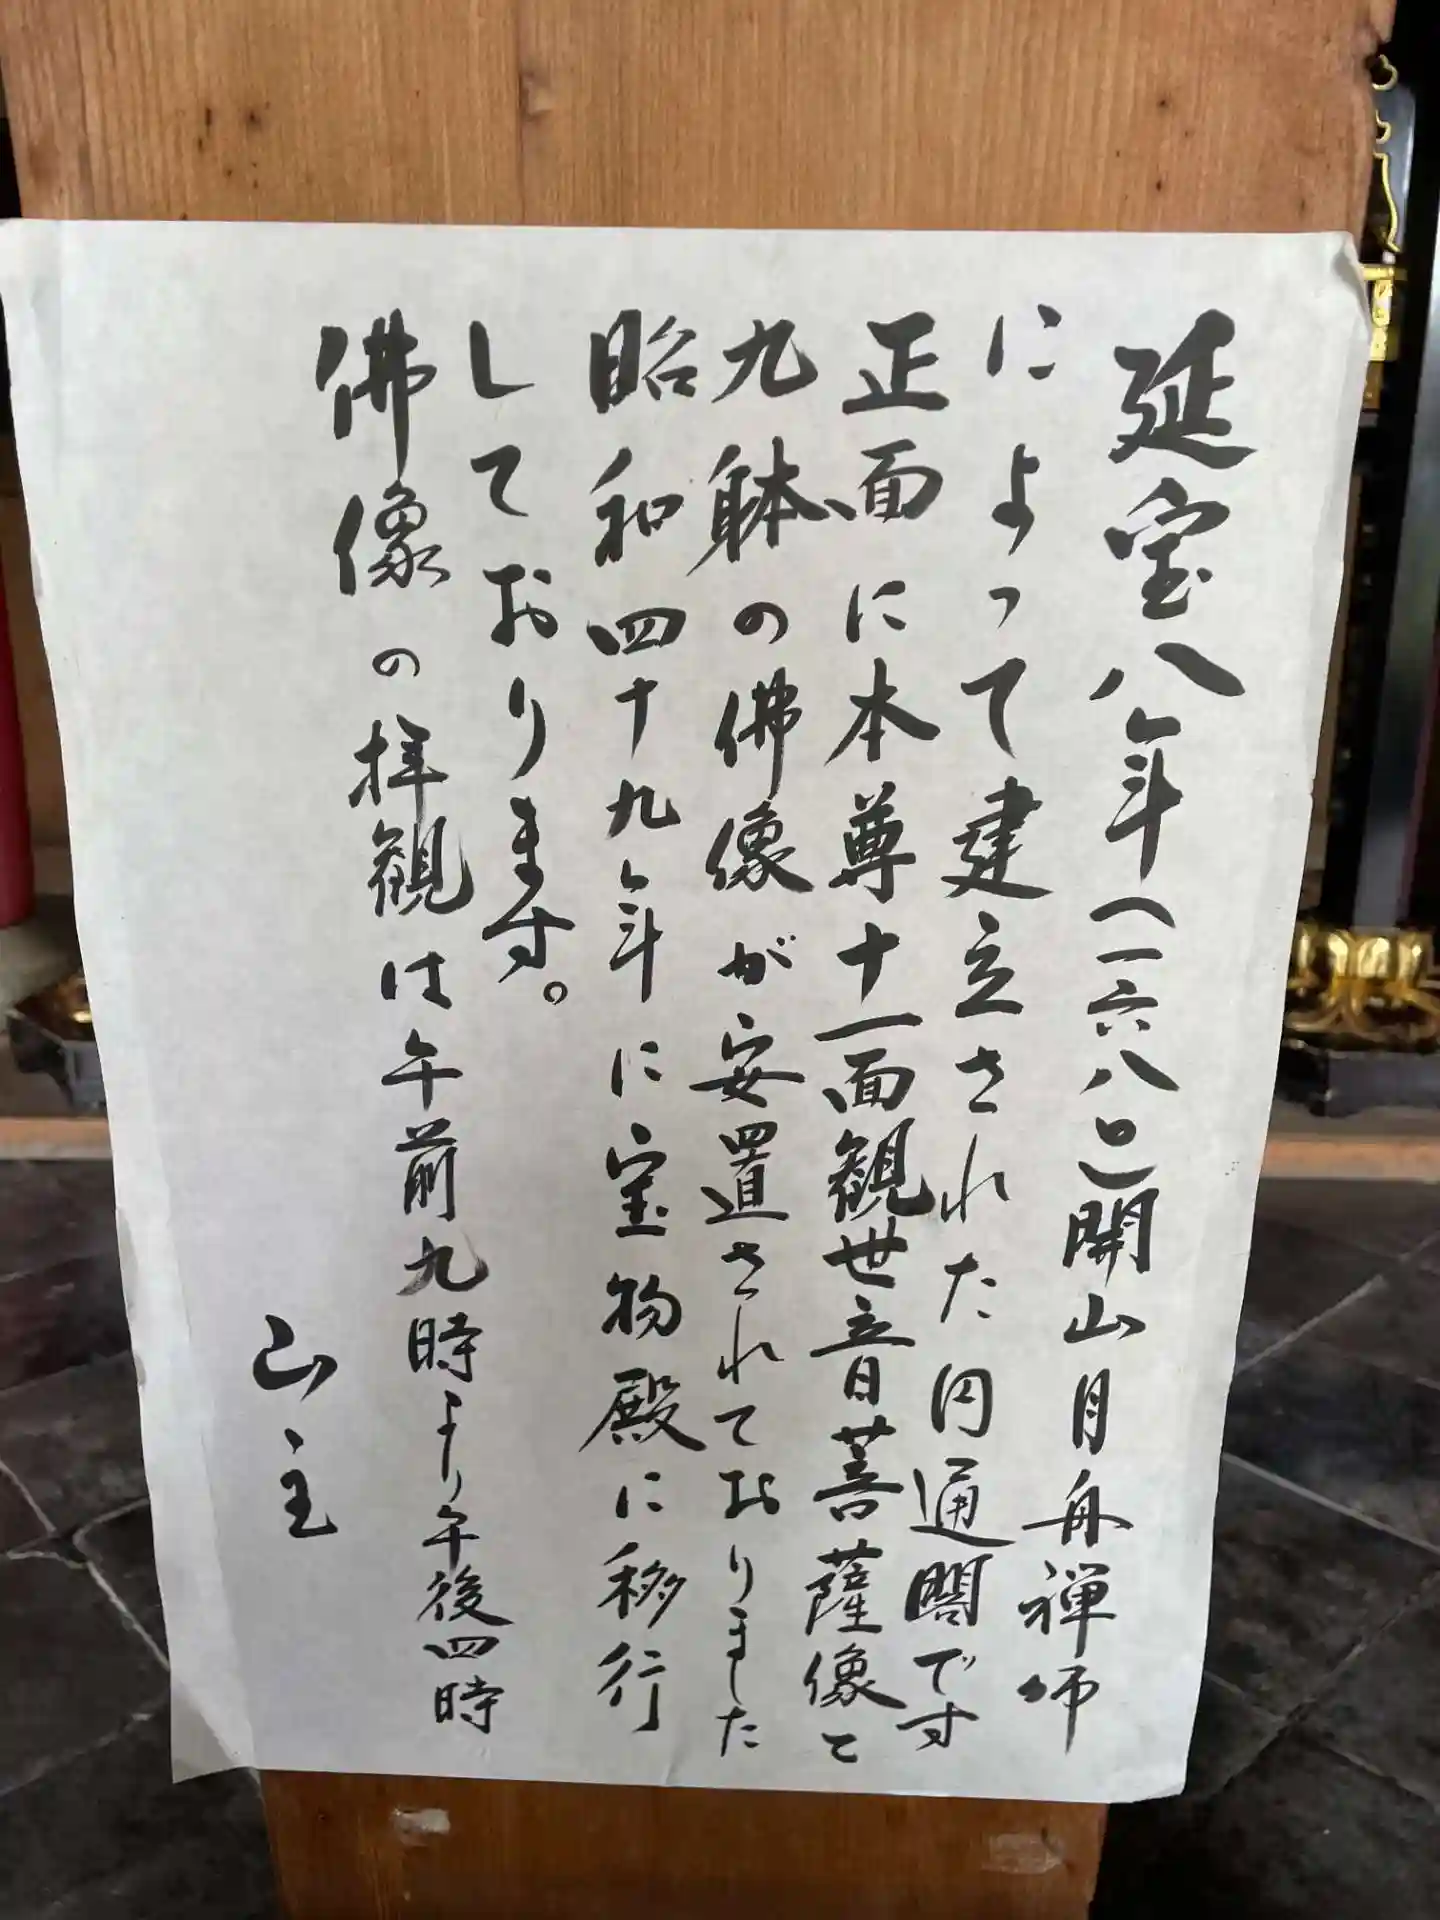 延宝八年(一六八〇)開山月舟禅師
によって建立された円通閣です
正面に本尊十一面観世音菩薩像と
九躰の佛像が安置されておりました
昭和四十九年に宝物殿に移行
しております。
佛像の拝観は午前九時より午後四時
山主